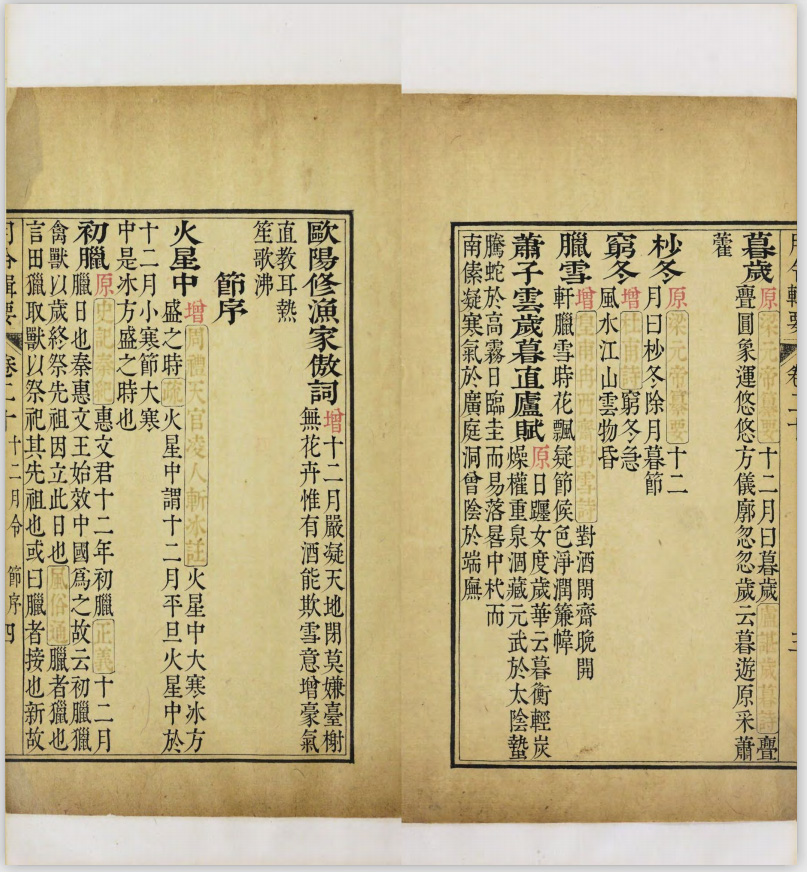 月令輯要 卷二十 三
暮歲 原梁元帝纂要十二月曰暮歲盧諶歲暮詩亹
亹圓象運悠悠方儀廓忽忽歲云暮遊原采蕭
藿
杪冬 原梁元帝纂要十二
月曰杪冬除月暮節
窮冬 增杜甫詩窮冬急
風水江山雲物昏
臘雪 增皇甫冉西齋對雪詩對酒閉齋晩開
軒臘雪時花飄疑節候色淨潤簾幃
蕭子雲歲暮直廬賦 原日躔女度歲華云暮衡輕炭
燥權重泉涸藏元武於太陰蟄
騰蛇於高霧日臨圭而易落晷中杙而
南傃凝寒氣於廣庭洞曾陰於端廡
歐陽修漁家傲詞 增十二月嚴凝天地閉莫嫌臺榭
無花卉惟有酒能欺雪意增豪氣
直教耳熱
笙歌沸
節序
火星中 增周禮天官凌人斬冰註火星中大寒冰方
盛之時疏火星中謂十二月平旦火星中於
十二月小寒節大寒
中是冰方盛之時也
初臘 原史記秦紀惠文君十二年初臘正義十二月
臘日也秦惠文王始效中國爲之故云初臘獵
禽獸以歲終祭先祖因立此日也風俗通臘者獵也
言田獵取獸以祭祀其先祖也或曰臘者接也新故
月令輯要 卷二十 十二月令 節序 四